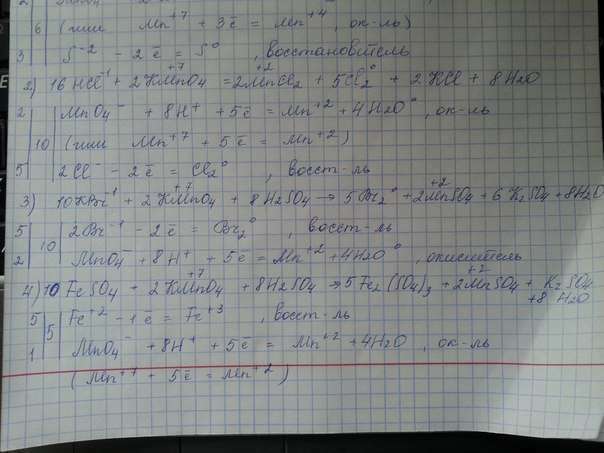 6 (или Mn⁺⁷ + 3ē = Mn⁺⁴, ок-ль)
3 S⁻² - 2ē = S⁰, восстановитель
2) 16 HCl⁻¹ + 2KMn⁺⁷O₄ = 2Mn⁺²Cl₂ + 5Cl₂⁰ + 2KCl + 8H₂O
2 MnO₄⁻ + 8H⁺ + 5ē = Mn⁺² + 4H₂O⁰, ок-ль
10 (или Mn⁺⁷ + 5ē = Mn⁺²)
5 2Cl⁻ - 2ē = Cl₂⁰, восст-ль
3) 10KBr⁻¹ + 2KMn⁺⁷O₄ + 8H₂SO₄ → 5Br₂⁰ + 2Mn⁺²SO₄ + 6K₂SO₄ + 8H₂O
5 10 2Br⁻¹ - 2ē = Br₂⁰, восст-ль
2 MnO₄⁻ + 8H⁺ + 5ē = Mn⁺² + 4H₂O⁰, окислитель
4) 10FeSO₄ + 2KMn⁺⁷O₄ + 8H₂SO₄ → 5Fe₂(SO₄)₃ + 2Mn⁺²SO₄ + K₂SO₄
+8H₂O
5 5 Fe⁺² - 1ē = Fe⁺³, восст-ль
1 MnO₄⁻ + 8H⁺ + 5ē = Mn⁺² + 4H₂O, ок-ль
(Mn⁺⁷ + 5ē = Mn⁺²)